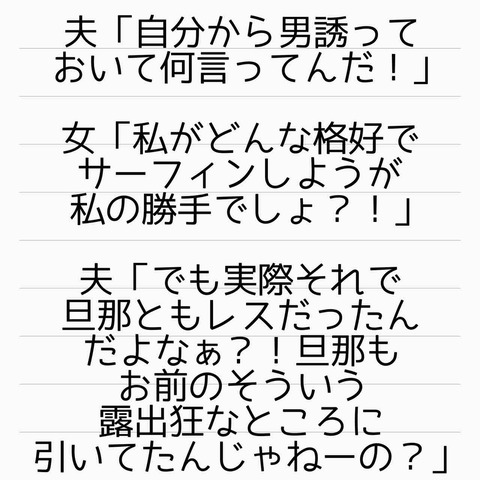 夫「自分から男誘って
おいて何言ってんだ！」
女「私がどんな格好で
サーフィンしようが
私の勝手でしょ？！」
夫「でも実際それで
旦那ともレスだったん
だよなぁ？！旦那も
お前のそういう
露出狂なところに
引いてたんじゃねーの？」